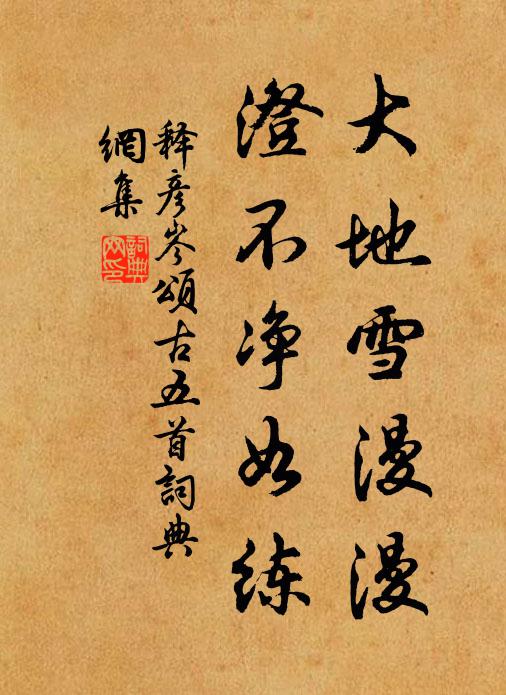 大地雪漫漫
澄不净如练
释彦岑頌古五首詞典
網集
詞典
网印